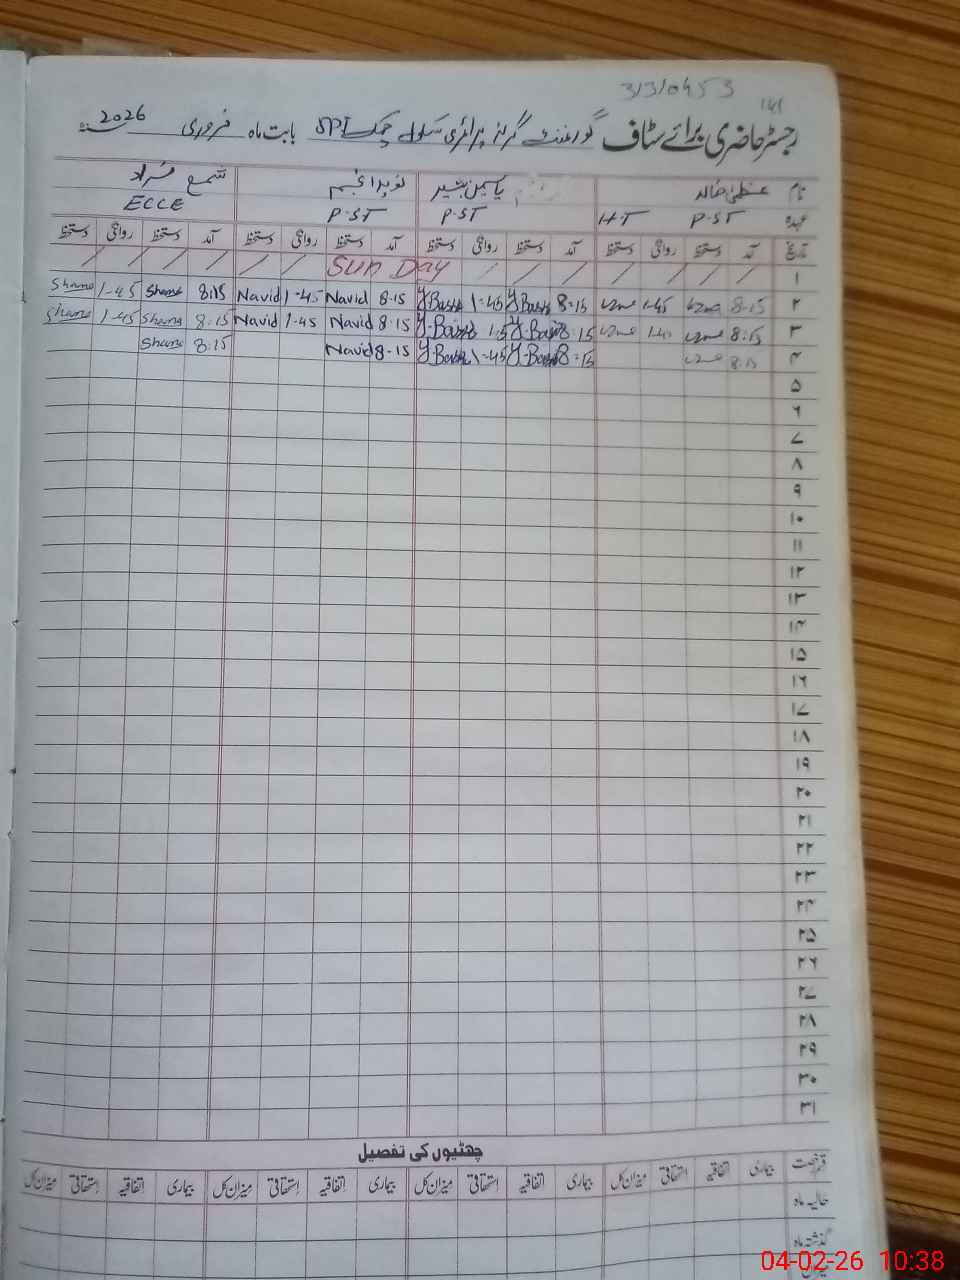 31310453
141
رجسٹر حاضری برائے سٹاف گورنمنٹ گرلز پرائمری سکول چک SPI بابت ماہ فروری 2026
نام عظمیٰ خالد یاسمین بشیر نوید انجم شمع مراد
عہدہ P.ST H-T P.ST P.ST ECCE
تاریخ آمد دستخط روانگی دستخط آمد دستخط روانگی دستخط آمد دستخط روانگی دستخط آمد دستخط روانگی دستخط
۱ Sun Day
۲ 8-15 1-45 8-15 Y.Bashir 1-45 Y.Bashir 8-15 Navid 1-45 Navid 8:15 Shama 1-45 Shama
۳ 8:15 8:15 Y.Bashir Y.Bashir 8:15 Navid 1-45 Navid 8:15 Shama 1-45 Shama
۴ 8:15 8:15 Y.Bashir 1-45 Y.Bashir 8-15 Navid 8:15 Shama
۵
۶
۷
۸
۹
۱۰
۱۱
۱۲
۱۳
۱۴
۱۵
۱۶
۱۷
۱۸
۱۹
۲۰
۲۱
۲۲
۲۳
۲۴
۲۵
۲۶
۲۷
۲۸
۲۹
۳۰
۳۱
چھٹیوں کی تفصیل
قسم رخصت بیماری اتفاقیہ استحقاقی میزان کل بیماری اتفاقیہ استحقاقی میزان کل بیماری اتفاقیہ استحقاقی میزان کل بیماری اتفاقیہ استحقاقی میزان کل
حالیہ ماہ
گذشتہ ماہ
04-02-26 10:38